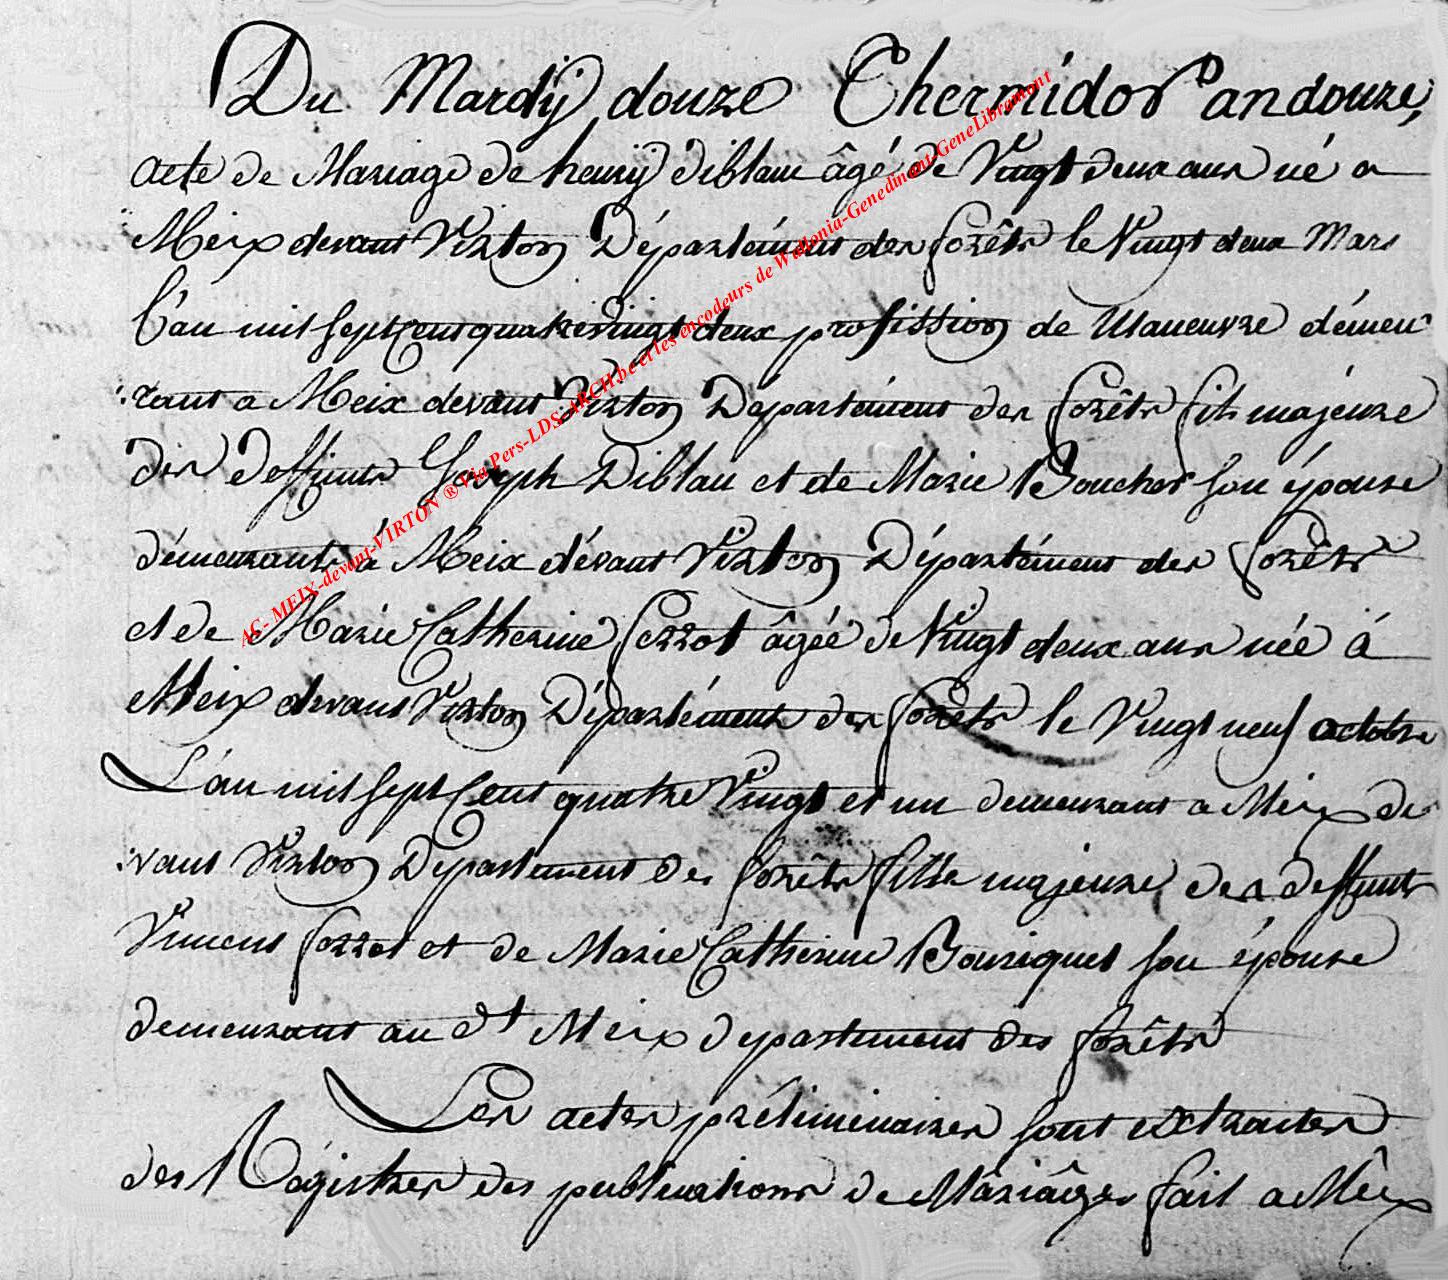 Du Mardÿ douze Thermidor an douze,
acte de Mariage de henrÿ diblau âgé de Vingt deux ans né a
Meix devant Virton Département des forêts le Vingt deux Mars
l'an mil sept Cent quatrevingt deux profission de Maneuvre démeu
rant a Meix devant Virton Département des forêts fils majeure
des deffunts Joseph Diblau et de Marie Boucher son épouse
démeurants á Meix dévant Virton Département des forêts
et de Marie Catherine ferrot âgée de Vingt deux ans née á
Meix devant Virton Département des forêts le Vingt neuf octobre
L'an mil sept Cent quatre Vingt et un demeurant a Meix de
vant Virton Departement des forêts fille majeure des deffunts
Vincent ferrot et de Marie Catherine Bouriquet son épouse
demeurant au dt Meix departement des forêts
Les actes préliminaires sont extraites
des Régistres des publications de Mariâges fait a Meix
AC- MEIX-devant-VIRTON ® Via Pers-LDS-ARCH.be et les encodeurs de Wallonia-Genedinant-GeneLibramont